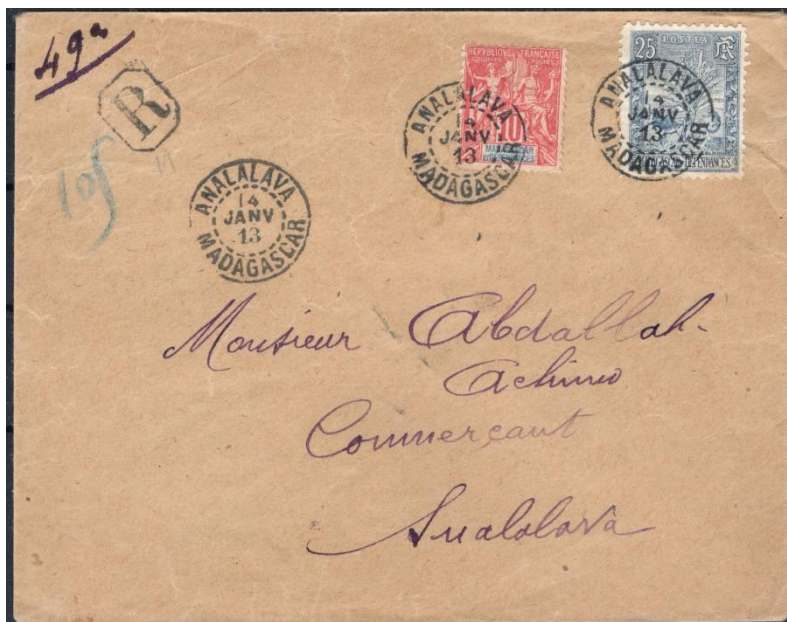 49a
R
ANALALAVA
14
JANV
13
MADAGASCAR
REPUBLIQUE FRANÇAISE
COLONIES POSTES
10
ANALALAVA
14
JANV
13
MADAGASCAR
25
POSTES
RF
DEPENDANCES
ANALALAVA
14
JANV
13
MADAGASCAR
Monsieur Abdallah
Achimo
Commerçant
Analalava